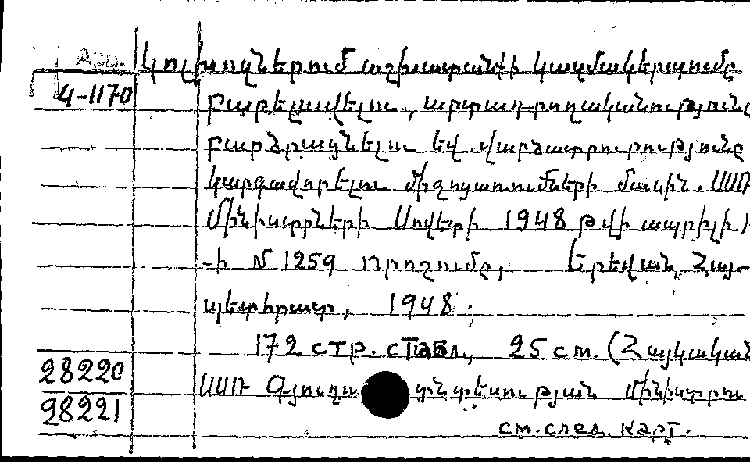 Арм.
Կոլխոզներում աշխատանքի կազմակերպումը
4-1170
բարելավելու, արտադրողականությունը
բարձրացնելու եվ վարձատրությունը
կարգավորելու միջոցառումների մասին. ՍՍՌ
Մինիստրների Սովետի 1948 թվի ապրիլի
-ի N 1259 որոշումը, Երեվան, Հայ-
պետհրատ, 1948.
172 стр. с табл., 25 см. (Հայկական
28220
ՍՍՌ Գյուղատնտեսության մինիստրու
28221
см. след. карт.